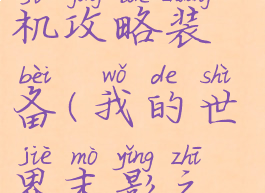 机攻略装
bèi wǒ de shì
备(我的世
jiè mò yǐng zhī
界末影之